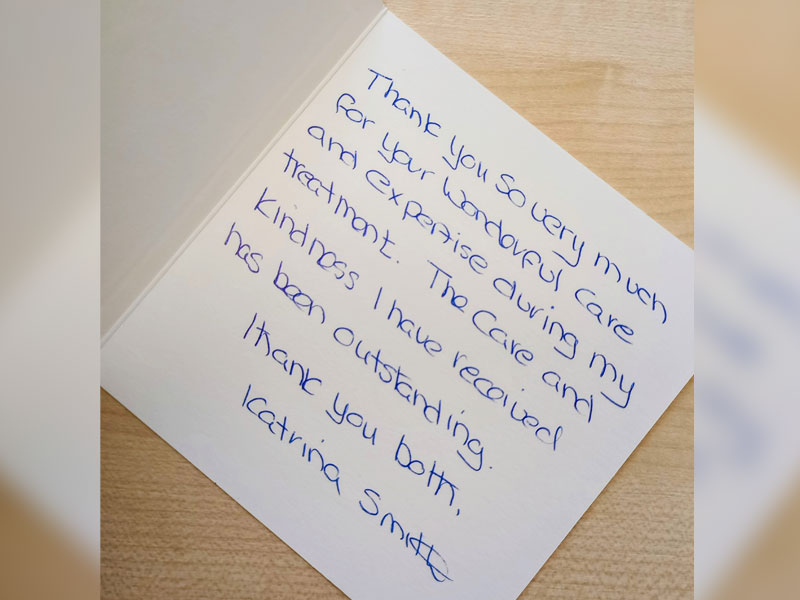 Thank you so very much
for your wonderful care
and expertise during my
treatment. The care and
kindness I have received
has been outstanding.
Thank you both,
Katrina Smith